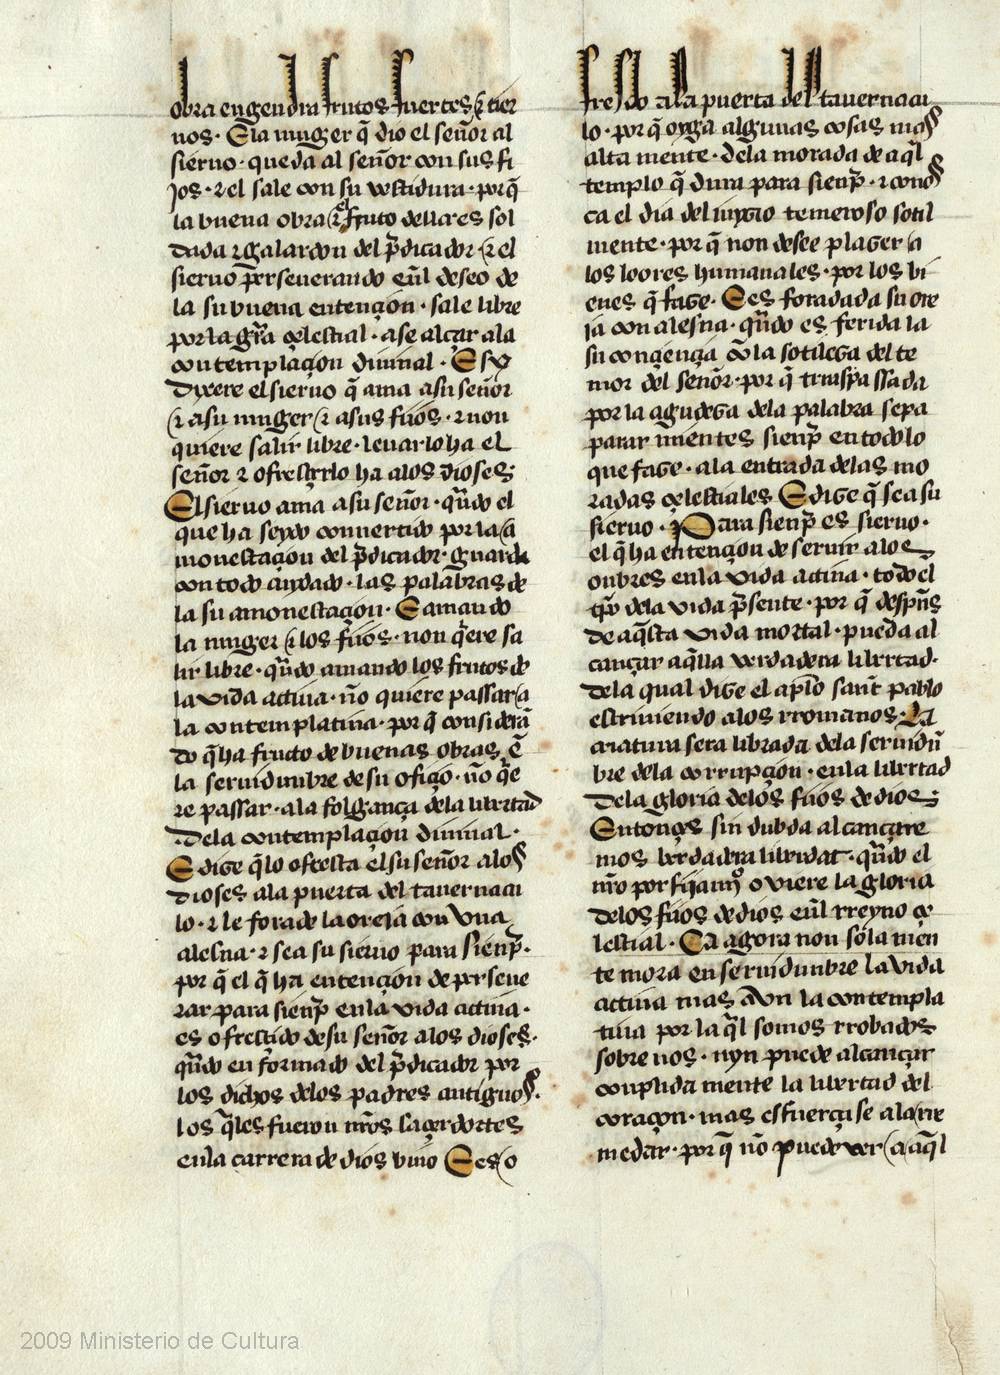 obra engendra frutos fuertes ⁊ tier
nos · E la muger q̃ dio el señor al
sieruo · queda al señor con sus fi
jos · ⁊ el sale con su vestidura · por q̃
la buena obra ⁊ el fruto della res sol
dada ⁊ galardon del p̃dicador ⁊ el
sieruo perseuerando eñl deseo de
la su buena entençion · sale libre
por la gr̃a çelestial · a se alçar a la
contemplaçion diuinal · E sy
dixere el sieruo q̃ ama a su señor
⁊ a su muger ⁊ a sus fijos · ⁊ non
quiere salir libre · leuarlo ha el
señor ⁊ ofresçrlo ha alos dioses
El sieruo ama a su señor · qñdo el
que ha seydo conuertido por la a
monestaçion del p̃dicador · guarda
con todo cuydado · las palabras de
la su amonestaçion · E amando
la muger ⁊ los fijos · non q̃ere sa
lir libre · qñdo amando los frutos de
la vida actiua · ño quiere passar a
la contemplatiua · por q̃ considerã
do q̃ ha fructo de buenas obras ẽ
la seruidunbre de su ofiçio · ño q̃e
re passar · a la folgança dela libertad
dela contemplaçion diuinal ·
E dize q̃ lo ofresca el su señor alos
dioses ala puerta del tauernacu
lo · ⁊ le forade la oreja con vna
alesna · ⁊ sea su sieruo para sienp̃ ·
por q̃ el q̃ ha entençion de perseue
rar para sienp̃ enla vida actiua ·
es ofresçido de su señor alos dioses ·
qñdo enformado del p̃dicador por
los dichos delos padres antiguos ·
los q̃les fueron nr̃os saçerdortes
enla carrera de dios viuo E es o
fresçido ala puerta del tauernacu
lo · por q̃ oyga algunas cosas mas
alta mente · dela morada de aq̃l
templo q̃ dura para sienp̃ · ⁊ conos
ca el dia del iuyzio temeroso sotil
mente · por q̃ non desee plazer a
los loores humanales · por los bi
enes q̃ faze · E es foradada su ore
ja con alesna · qñdo es ferida la
su conçiençia cõ la sotileza del te
mor del señor · por q̃ traspassada
por la agudeza dela palabra sepa
parar mientes sienp̃ en todo lo
que faze · ala entrada delas mo
radas çelestiales E dize q̃ sea su
sieruo · Para sienp̃ es sieruo ·
el q̃ ha entençion de seruir alos
onbres enla vida actiua · todo el
tp̃o dela vida p̃sente · por q̃ despũs
de aq̃sta vida mortal · pueda al
cançar aq̃lla verdadera libertad ·
dela qual dize el ap̃lo sant pablo
escriuiendo alos rromanos · La
criatura sera librada dela seruidũ
bre dela corrupçion · enla libertad
dela gloria delos fijos de dios
Entonçes sin dubda alcançare
mos berdadera libertat · qñdo el
nr̃o porfijamjº ouiere la gloria
delos fijos de dios eñl rreyno çe
lestial · Ca agora non sola men
te mora en seruidunbre la vida
actiua mas avn la contempla
tiua por la q̃l somos rrobados
sobre nos · nyn puede alcançar
conplida mente la libertad del
coraçon · mas esfuerçase ala rre
medar · por q̃ ño puede ver a aq̃l
2009 Ministerio de Cultura